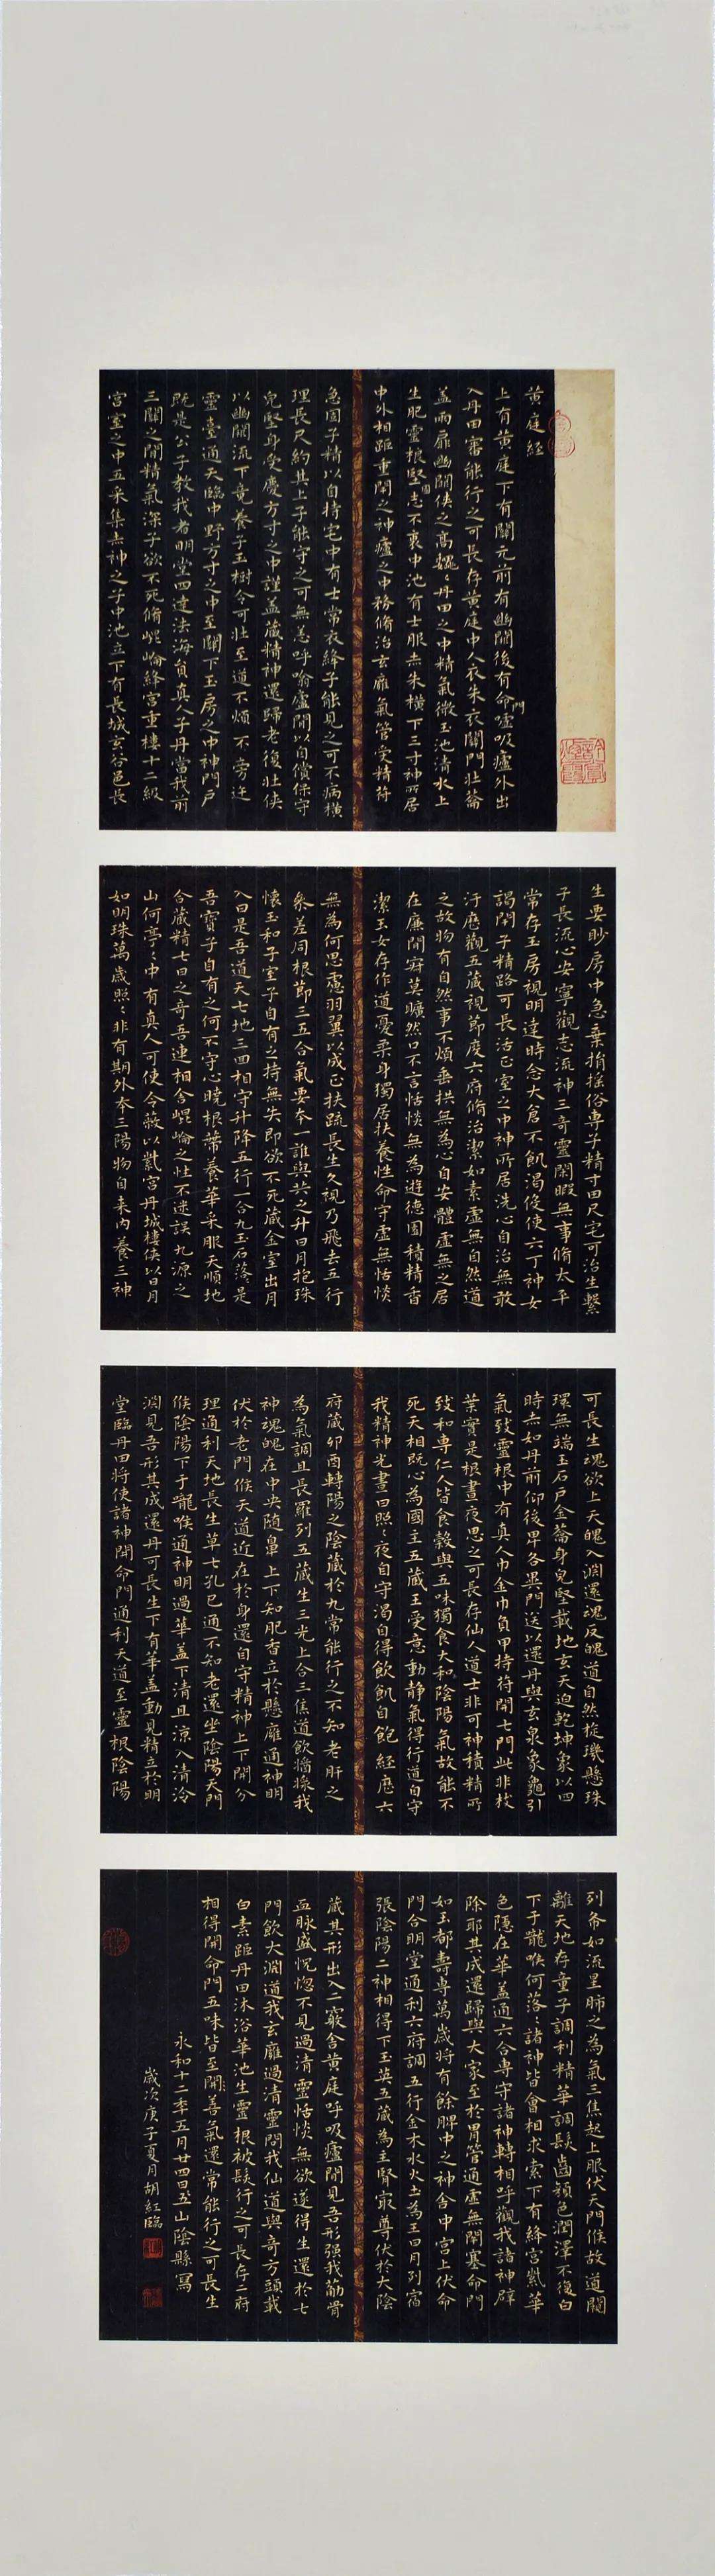 黃庭經
上有黃庭下有關元前有幽闕後有命門噓吸廬外出
入丹田審能行之可長存黃庭中人衣朱衣關門壯蘥
蓋兩扉幽闕俠之高巍巍丹田之中精氣微玉池清水上
生肥靈根堅固志不衰中池有士服赤朱橫下三寸神所居
中外相距重閉之神廬之中務脩治玄廱氣管受精符
急固子精以自持宅中有士常衣絳子能見之可不病橫
理長尺約其上子能守之可無恙呼噏廬間以自償保守
皃堅身受慶方寸之中謹蓋藏精神還歸老復壯俠
以幽闕流下竟養子玉樹令可壯至道不煩不旁迕
靈臺通天臨中野方寸之中至關下玉房之中神門戶
既是公子教我者明堂四達法海員真人子丹當我前
三關之間精氣深子欲不死脩崐崘絳宮重樓十二級
宮室之中五采集赤神之子中池立下有長城玄谷邑長
生要眇房中急棄捐搖俗專子精寸田尺宅可治生繫
子長流心安寧觀志流神三奇靈閑暇無事脩太平
常存玉房視明達時念大倉不飢渴役使六丁神女
謁閉子精路可長活正室之中神所居洗心自治無敢
汙歷觀五藏視節度六府脩治潔如素虛無自然道
之故物有自然事不煩垂拱無為心自安體虛無之居
在廉間寂莫曠然口不言恬惔無為遊德園積精香
潔玉女存作道憂柔身獨居扶養性命守虛無恬惔
無為何思慮羽翼以成正扶疏長生久視乃飛去五行
參差同根節三五合氣要本一誰與共之升日月抱珠
懷玉和子室子自有之持無失即欲不死藏金室出月
入日是吾道天七地三回相守升降五行一合九玉石落落是
吾寶子自有之何不守心曉根蒂養華采服天順地
合藏精七日之奇吾連相舍崐崘之性不迷誤九源之
山何亭亭中有真人可使令蔽以紫宮丹城樓俠以日月
如明珠萬歲照照非有期外本三陽物自來內養三神
可長生魂欲上天魄入淵還魂反魄道自然琁璣懸珠
環無端玉石戶金蘥身皃堅載地玄天迫乾坤象以四
時赤如丹前仰後卑各異門送以還丹與玄泉象龜引
氣致靈根中有真人巾金巾負甲持符開七門此非枝
葉實是根晝夜思之可長存仙人道士非可神積精所
致和專仁人皆食穀與五味獨食大和陰陽氣故能不
死天相既心為國主五藏王受意動靜氣得行道自守
我精神光晝日照照夜自守渴自得飲飢自飽經歷六
府藏卯酉轉陽之陰藏於九常能行之不知老肝之
為氣調且長羅列五藏生三光上合三焦道飲醬漿我
神魂魄在中央隨鼻上下知肥香立於懸廱通神明
伏於老門候天道近在於身還自守精神上下開分
理通利天地長生草七孔已通不知老還坐陰陽天門
候陰陽下于嚨喉通神明過華蓋下清且涼入清泠
淵見吾形其成還丹可長生下有華蓋動見精立於明
堂臨丹田將使諸神開命門通利天道至靈根陰陽
列布如流星肺之為氣三焦起上服伏天門候故道闚
離天地存童子調利精華調髮齒顏色潤澤不復白
下于嚨喉何落落諸神皆會相求索下有絳宮紫華
色隱在華蓋通六合專守諸神轉相呼觀我諸神辟
除耶其成還歸與大家至於胃管通虛無閉塞命門
如玉都壽專萬歲將有餘脾中之神舍中宮上伏命
門合明堂通利六府調五行金木水火土為王日月列宿
張陰陽二神相得下玉英五藏為主腎最尊伏於大陰
藏其形出入二竅舍黃庭呼吸廬間見吾形强我筋骨
血脉盛怳惚不見過清靈恬惔無欲遂得生還於七
門飲大淵道我玄廱過清靈問我仙道與奇方頭載
白素距丹田沐浴華池生靈根被髮行之可長存二府
相得開命門五味皆至開善氣還常能行之可長生
永和十二年五月廿四日五山陰縣寫
歲次庚子夏月胡紅臨